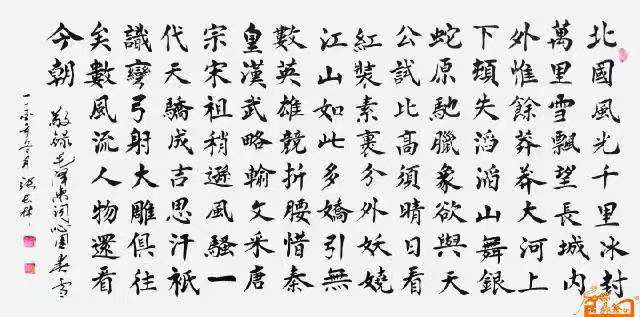 北國風光千里冰封
萬里雪飄望長城内
外惟餘莽莽大河上
下頓失滔滔山舞銀
蛇原馳臘象欲與天
公試比高須晴日看
紅裝素裹分外妖嬈
江山如此多嬌引無
數英雄競折腰惜秦
皇漢武略輸文采唐
宗宋祖稍遜風騷一
代天驕成吉思汗祇
識彎弓射大雕俱往
矣數風流人物還看
今朝
敬録毛澤東詞沁園春雪